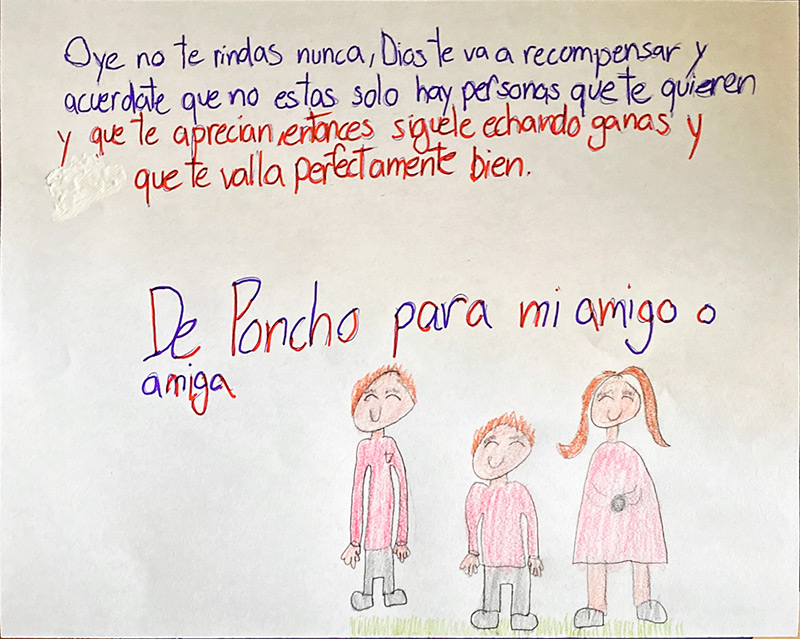 Oye no te rindas nunca, Dios te va a recompensar y
acuerdate que no estas solo hay personas que te quieren
y que te aprecian, entonces siguele echando ganas y
que te valla perfectamente bien.
De Poncho para mi amigo o
amiga